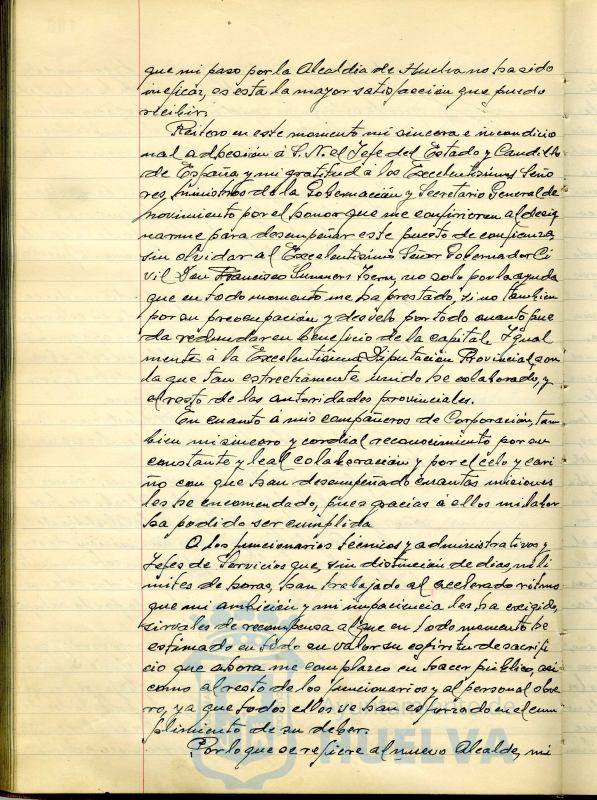 que mi paso por la Alcaldia de Huelva no ha sido
ineficaz, es esta la mayor satisfacción que puedo
recibir.
Reitero en este momento mi sincera e incondicio
nal adhesión á S. N. el Jefe del Estado y Caudillo
de España y mi gratitud á los Excelentisimos Seño
res, Ministros de la Gobernación y Secretario General del
Movimiento por el honor que me confirieron al desig
narme para desempeñar este puesto de confianza,
sin olvidar al Excelentisimo Señor Gobernador Ci
vil Don Francisco Summers Isern, no solo por la ayuda
que en todo momento me ha prestado, sino tambien
por su preocupación y desvelo por todo cuanto pue
da redundar en beneficio de la capital. Igual
mente á la Excelentisima Diputación Provincial, con
la que tan estrechamente unido he colaborado, y
el resto de las autoridades provinciales.
En cuanto á mis compañeros de Corporación, tam
bien mi sincero y cordial reconocimiento por su
constante y leal colaboración y por el celo y cari
ño con que han desempeñado cuantas misiones
les he encomendado, pues gracias á ellos mi labor
ha podido ser cumplida.
A los funcionarios técnicos y administrativos y
Jefes de Servicios que, sin distinción de dias, ni li
mites de horas, han trabajado al acelerado ritmo
que mi ambición y mi impaciencia les ha exigido,
sirvales de recompensa el que en todo momento he
estimado en todo su valor su espiritu de sacrifi
cio que ahora me complazco en hacer público, asi
como al resto de los funcionarios y al personal obre
ro, ya que todos ellos se han esforzado en el cum
plimiento de su deber.
Por lo que se refiere al nuevo Alcalde, mi
Ayuntamiento de
HUELVA